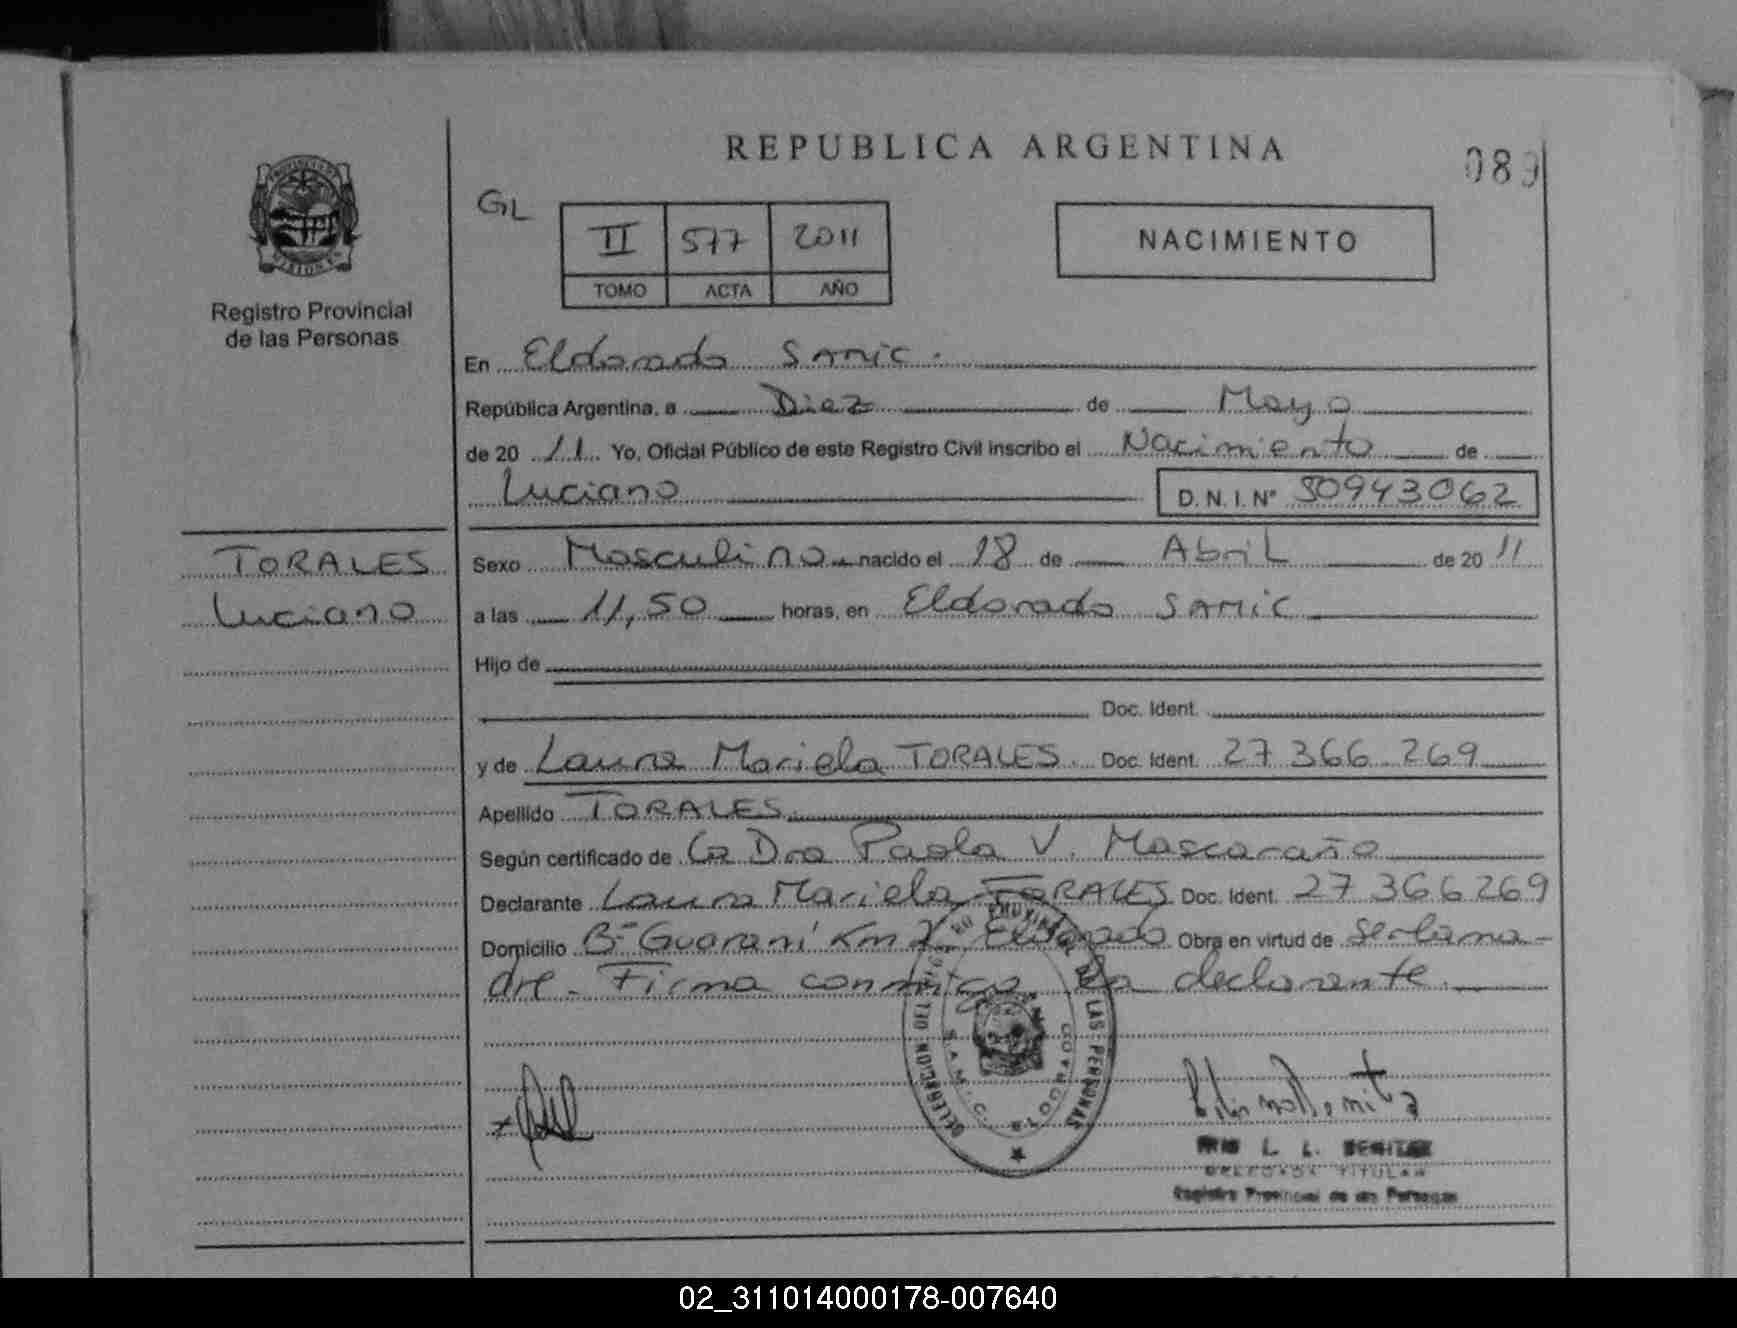 REPUBLICA ARGENTINA
089
PROVINCIA DE
MISIONES
Registro Provincial
de las Personas
GL
II 577 2011
TOMO ACTA AÑO
NACIMIENTO
En Eldorado SAMIC.
República Argentina, a Diez de Mayo
de 20 11 Yo, Oficial Público de este Registro Civil inscribo el Nacimiento de
Luciano D.N.I. Nº 50943062
TORALES
Luciano
Sexo Masculino nacido el 18 de Abril de 20 11
a las 11,50 horas, en Eldorado SAMIC
Hijo de
Doc. Ident.
y de Laura Mariela TORALES. Doc. Ident. 27 366.269
Apellido TORALES
Según certificado de la Dra Paola V. Mascaraño
Declarante Laura Mariela TORALES Doc. Ident. 27 366269
Domicilio Bº Guaraní Km 2 Eldorado Obra en virtud de ser la ma-
dre. Firma conmigo la declarante.
DELEGACION DEL REGISTRO PROVINCIAL DE LAS PERSONAS
S.A.M.I.C. ELDORADO
L. L. BENITEZ
DELEGADA TITULAR
Registro Provincial de las Personas
02_311014000178-007640